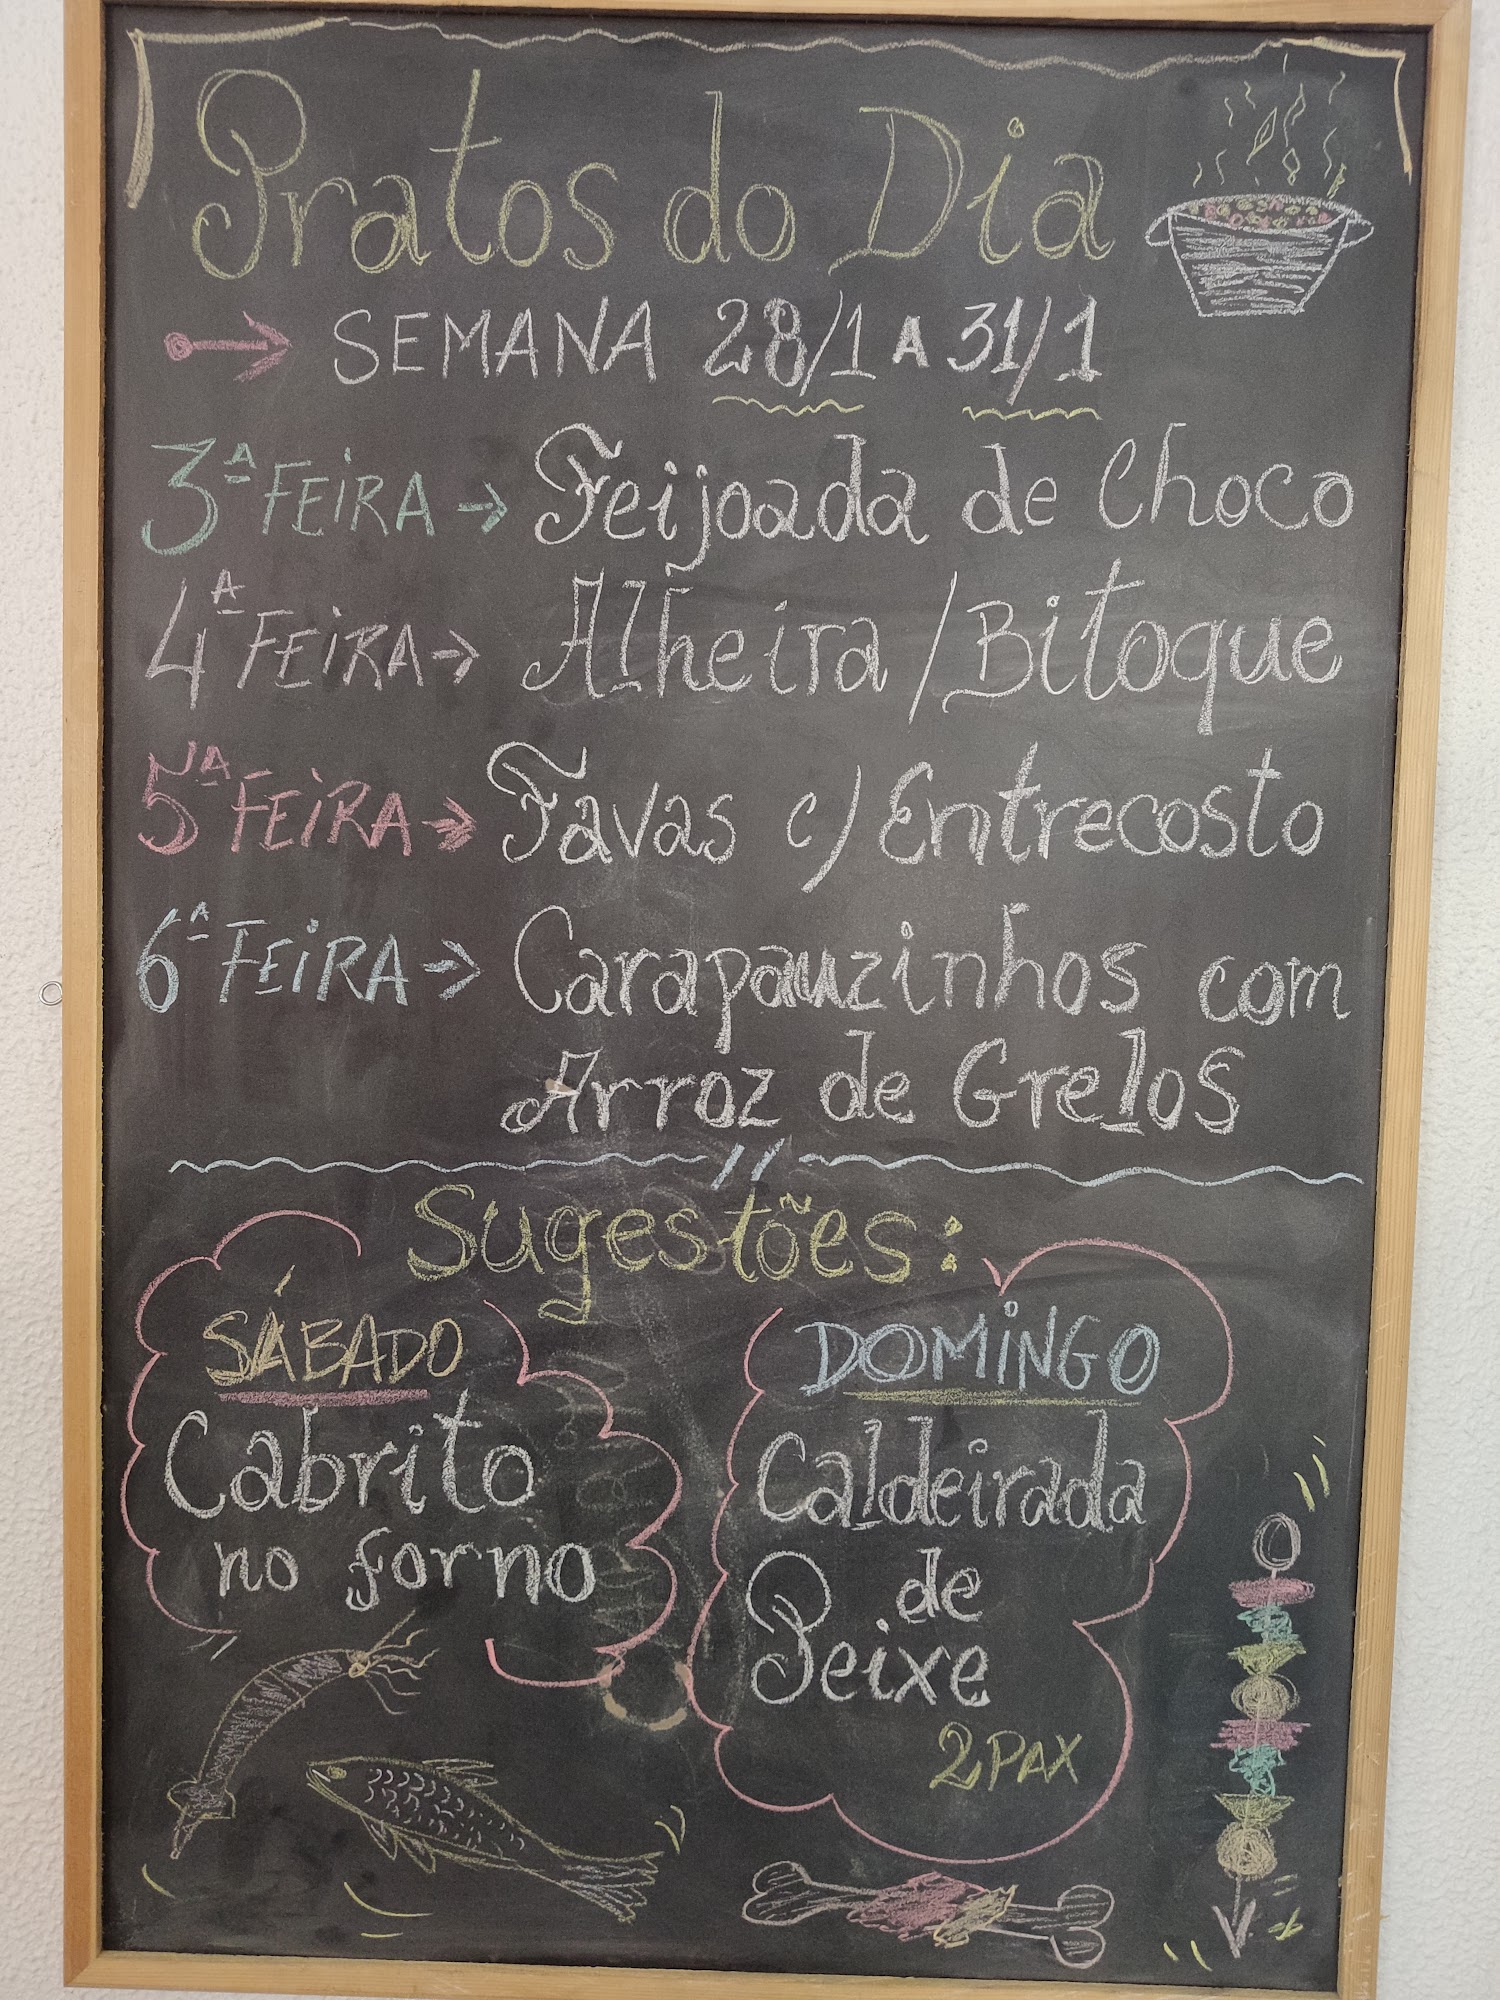 Pratos do Dia
SEMANA 28/1 A 31/1
3ª FEIRA → Feijoada de Choco
4ª FEIRA → Alheira / Bitoque
5ª FEIRA → Favas c/ Entrecosto
6ª FEIRA → Carapauzinhos com
Arroz de Grelos
Sugestões:
SÁBADO
Cabrito
no forno
DOMINGO
Caldeirada
de
Peixe
2 PAX